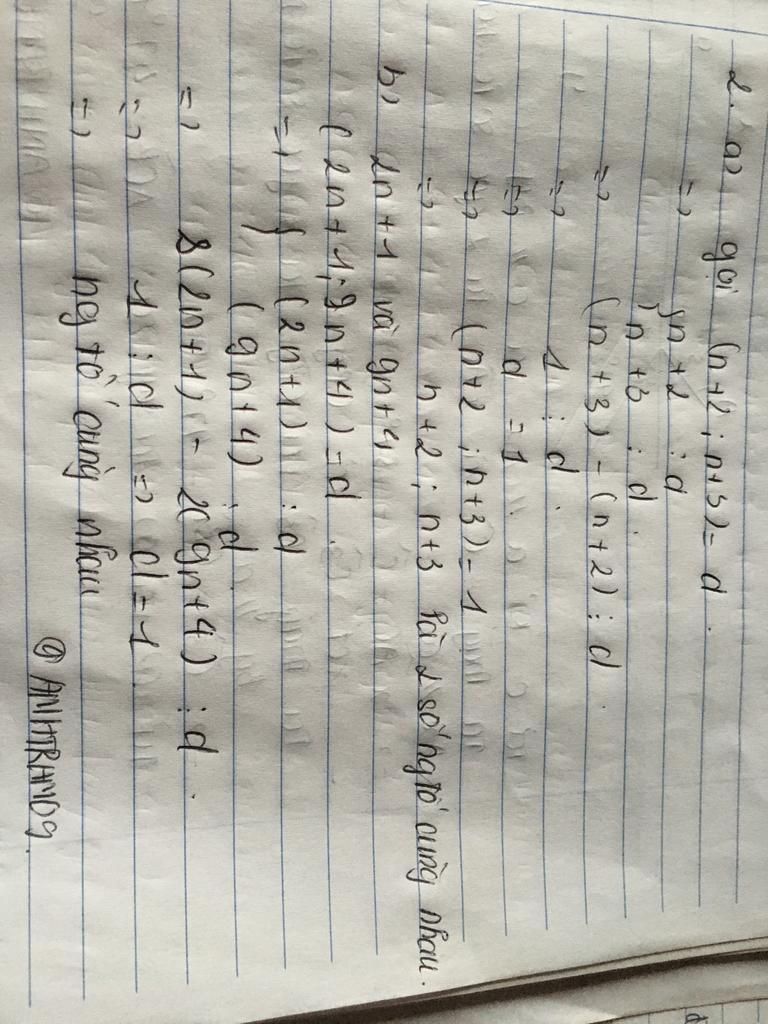 2. a) gọi (n+2 ; n+3) = d.
=> { n+2 ⋮ d
n+3 ⋮ d
=> (n+3) - (n+2) ⋮ d.
=> 1 ⋮ d
=> d = 1
=> (n+2 ; n+3) = 1
=> n+2 ; n+3 là 2 số ngtố cùng nhau.
b) 2n+1 và 9n+4
(2n+1 ; 9n+4) = d.
=> { (2n+1) ⋮ d
(9n+4) ⋮ d
=> 8(2n+1) - 2(9n+4) ⋮ d.
=> 1 ⋮ d => d = 1
=> ngtố cùng nhau
@ANHTRAM09.